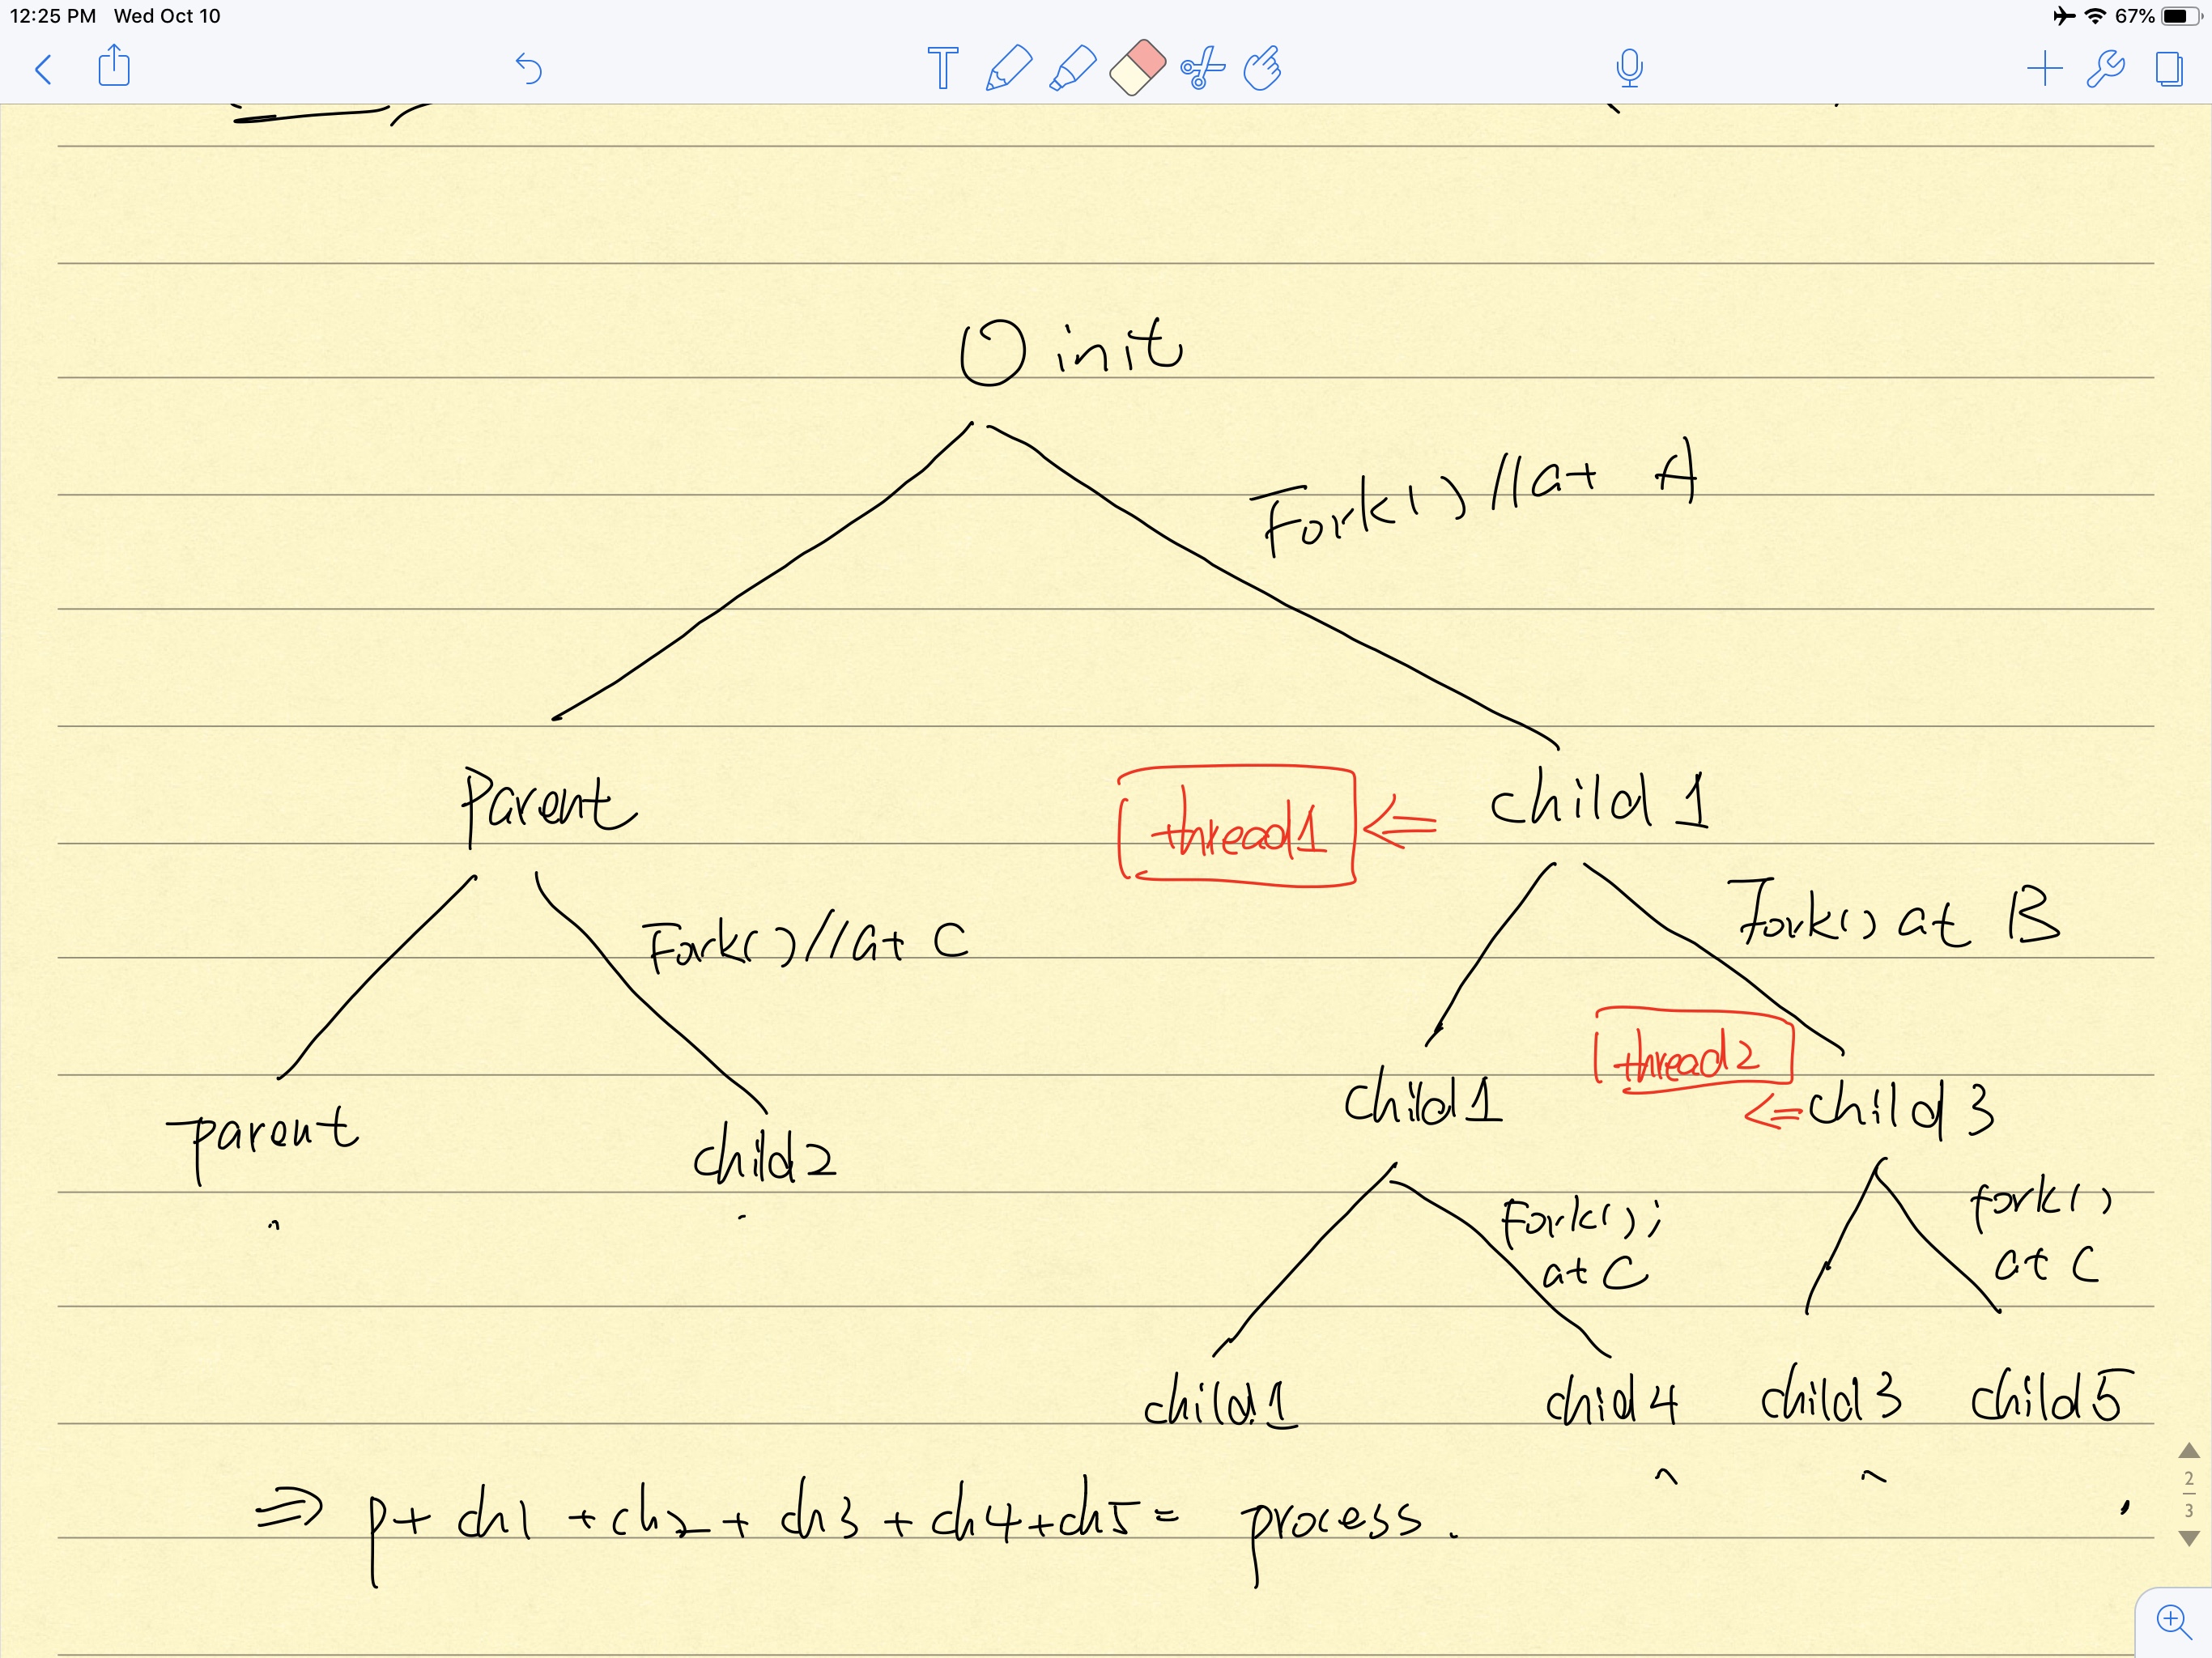 12:25 PM Wed Oct 10 67%
T
O init
Fork() //at A
Parent
thread1 <= child 1
Fork() //at C
Fork() at B
thread2
parent
child2
child1
<= child 3
Fork();
at C
fork()
at C
child1
chid 4
child3
child5
2
3
=> p+ ch1 +ch2 + ch3 + ch4+ch5 = process.